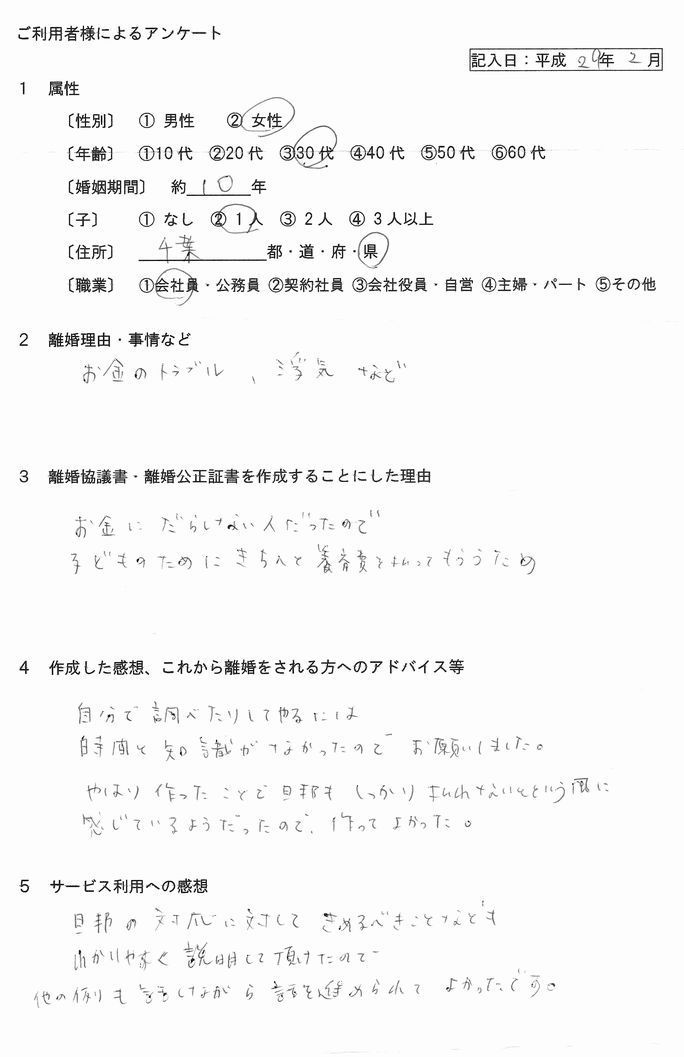 ご利用者様によるアンケート
記入日：平成 29年 2月
1 属性
〔性別〕 ① 男性 ② 女性
〔年齢〕 ①10代 ②20代 ③30代 ④40代 ⑤50代 ⑥60代
〔婚姻期間〕 約10年
〔子〕 ① なし ② 1人 ③ 2人 ④ 3人以上
〔住所〕 千葉 都・道・府・県
〔職業〕 ①会社員・公務員 ②契約社員 ③会社役員・自営 ④主婦・パート ⑤その他
2 離婚理由・事情など
お金のトラブル、浮気 など
3 離婚協議書・離婚公正証書を作成することにした理由
お金に だらしない人だったので
子どものために きちんと養育費を払ってもらうため
4 作成した感想、これから離婚をされる方へのアドバイス等
自分で調べたりしてやるには
時間と知識がなかったので お願いしました。
やはり作ったことで旦那も しっかり 払わないとという風に
感じているようだったので、作って よかった。
5 サービス利用への感想
旦那の対応に対して きめるべきことなども
わかりやすく説明して頂けたので
他の例も話しながら 話を進められて よかったです。